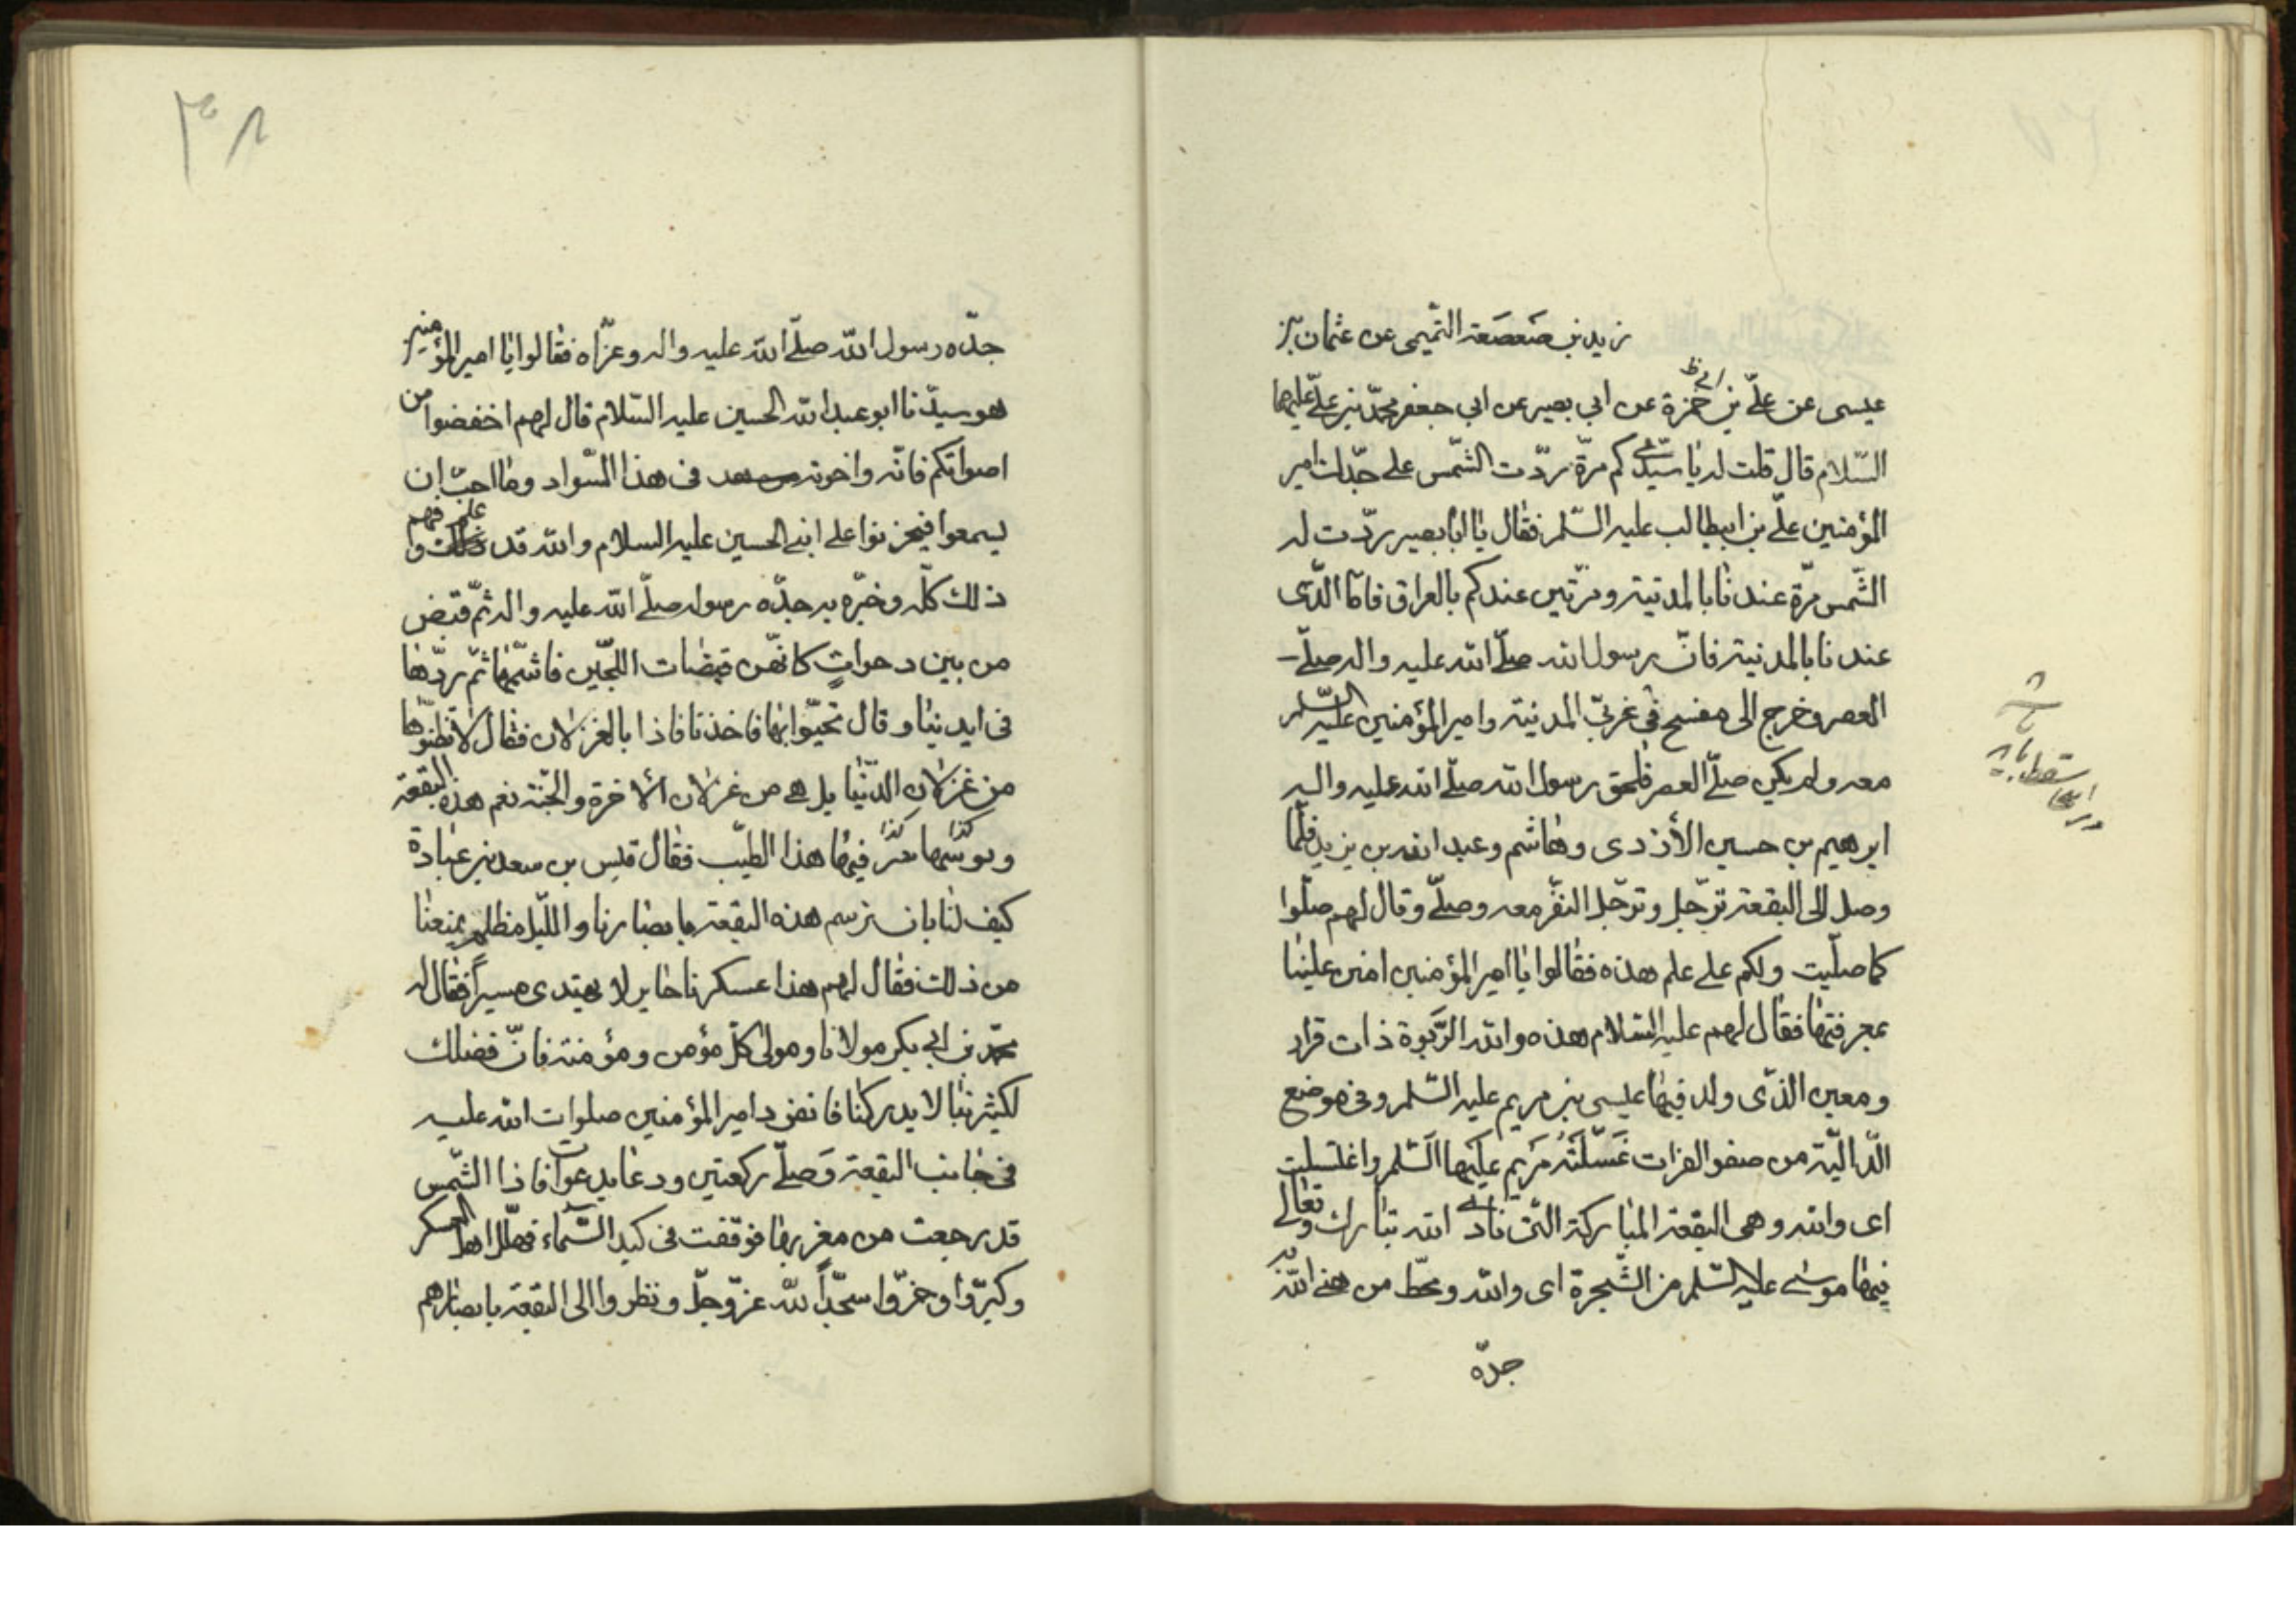 زيد بن صَعصَعة التّميمى عن عثمان بن
عيسى عن علىّ بن ابى حمزة عن ابى بصير عن ابى جعفر محمّد بن علىّ عليهما
السّلام قال قلت له يا سيّدى كم مرّة ردّت الشّمس على جدّك امير
المؤمنين علىّ بن ابيطالب عليه السّلم فقال يا ابا بصير ردّت له
الشّمس مرّة عندنا بالمدنية ومرّتين عندكم بالعراق فامّا الّذى
عندنا بالمدنية فانّ رسول الله صلّى الله عليه واله صلّى
العصر وخرج الى مفسح فى غربىّ المدنية وامير المؤمنين عليه السّلم
معه ولم يكن صلّى العصر فلحق رسول الله صلّى الله عليه واله
ابرهيم بن حسين الأزدى وهاشم وعبد الله بن يزيد فلمّا
وصل الى البقعة ترجّل وترجّل النفر معه وصلّى وقال لهم صلّوا
كما صلّيت ولكم على علم هذه فقالوا يا امير المؤمنين امنن علينا
بمعرفتها فقال لهم عليه السّلام هذه والله الرَّبوة ذات قرار
ومعين الذّى ولد فيها عيسى بن مريم عليه السّلم وفى موضع
الدّالية من صفو الفرات غَسّلَتْه مَريم عليها السّلم واغتسلت
اى والله وهى البقعة المباركة التى نادى الله تبارك وتعالى
فيها موسى عليه السّلم من الشّجرة اى والله ومحطّ من هنى الله به
جدّه
جدّه رسول الله صلّى الله عليه واله وعزّاه فقالوا يا امير المؤمنين
هو سيّدنا ابو عبد الله الحسين عليه السّلام قال لهم اخفضوا من
اصواتكم فانّه واخوته فى هذا السّواد وما احبّ ان
يسمعوا فيحزنوا على ابنى الحسين عليه السلام والله قد علم وفهم
ذلك كلّه وخبّره به جدّه رسول صلّى الله عليه واله ثمّ قبض
من بين دحوات كانّهن قبضات اللجّين فاشتمّها ثمّ ردّها
فى ايدينا وقال تحيّوا بها فاخذنا فاذا بالغزلان فقال لا تظنّوها
من غزلان الدّنيا بل هى من غزلان الآخرة والجنّة نعم هذه البقعة
كذا كذا فيها هذا الطيّب فقال قيس بن سعد بن عبادة
كيف لنا بان نرسم هذه البقعة بابصارنا واللّيل مظلم يمنعنا
من ذلك فقال لهم هذا عسكرنا حاير لا يهتدى مسيراً فقال له
محمّد بن ابى بكر مولانا ومولى كلّ مؤمن ومؤمنة فانّ فضلك
لكثير نبا لا يدركنا فانفرد امير المؤمنين صلوات الله عليه
فى جانب البقعة وَصلّى ركعتين ودعا بدعوات فاذا الشّمس
قد رجعت من مغربها فوقفت فى كبد السّماء فهلّل اهل العسكر
وكبّروا وخرّوا سجّداً لله عزّوجلّ ونظروا الى البقعة بابصارهم